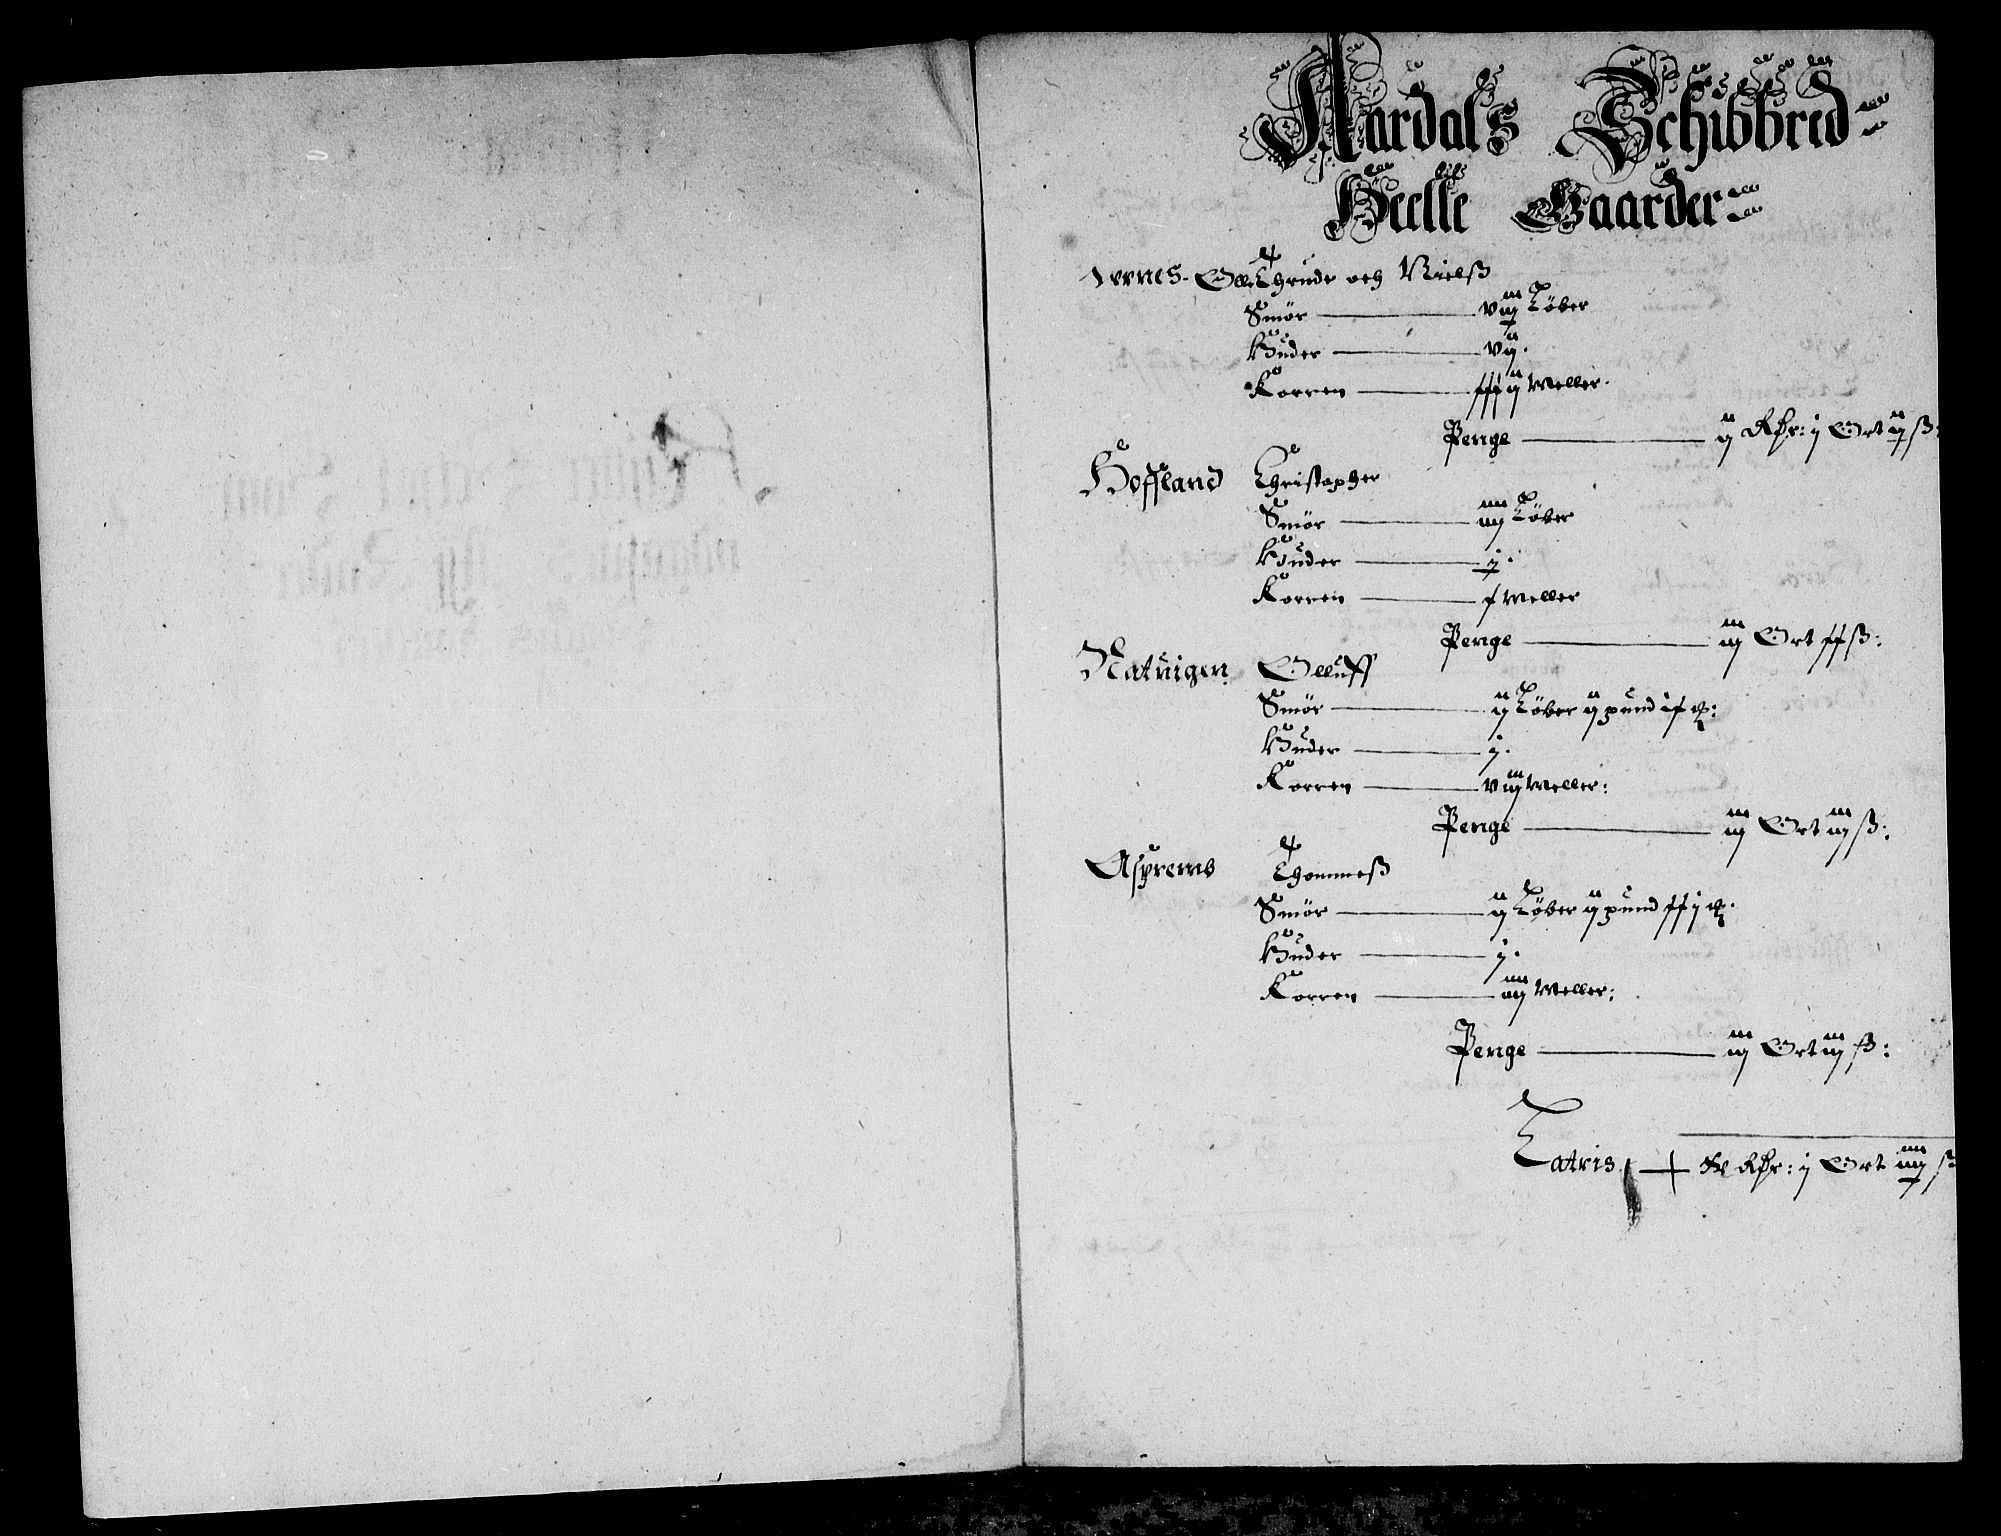 Aardals Schibbred
Heelle Gaarder
Thrude och Nielß
Smør — viij Løber
Huder — vij.
Korren — xxxij Meller.
Penge — ij Rdr: j Ort ij ß:
Hoffland Christopher
Smør — iiij Løber
Huder — j.
Korren — x Meller
Penge — iij Ort xx ß:
Natuigen Olluff
Smør — ij Løber ij pund
Huder — j.
Korren — viij Meller:
Penge — iij Ort iij ß:
Asprems Thommeß
Smør — ij Løber ij pund
Huder — j.
Korren — iiij Meller:
Penge — iij Ort iij ß:
Latris — Rdr: j Ort iiij ß